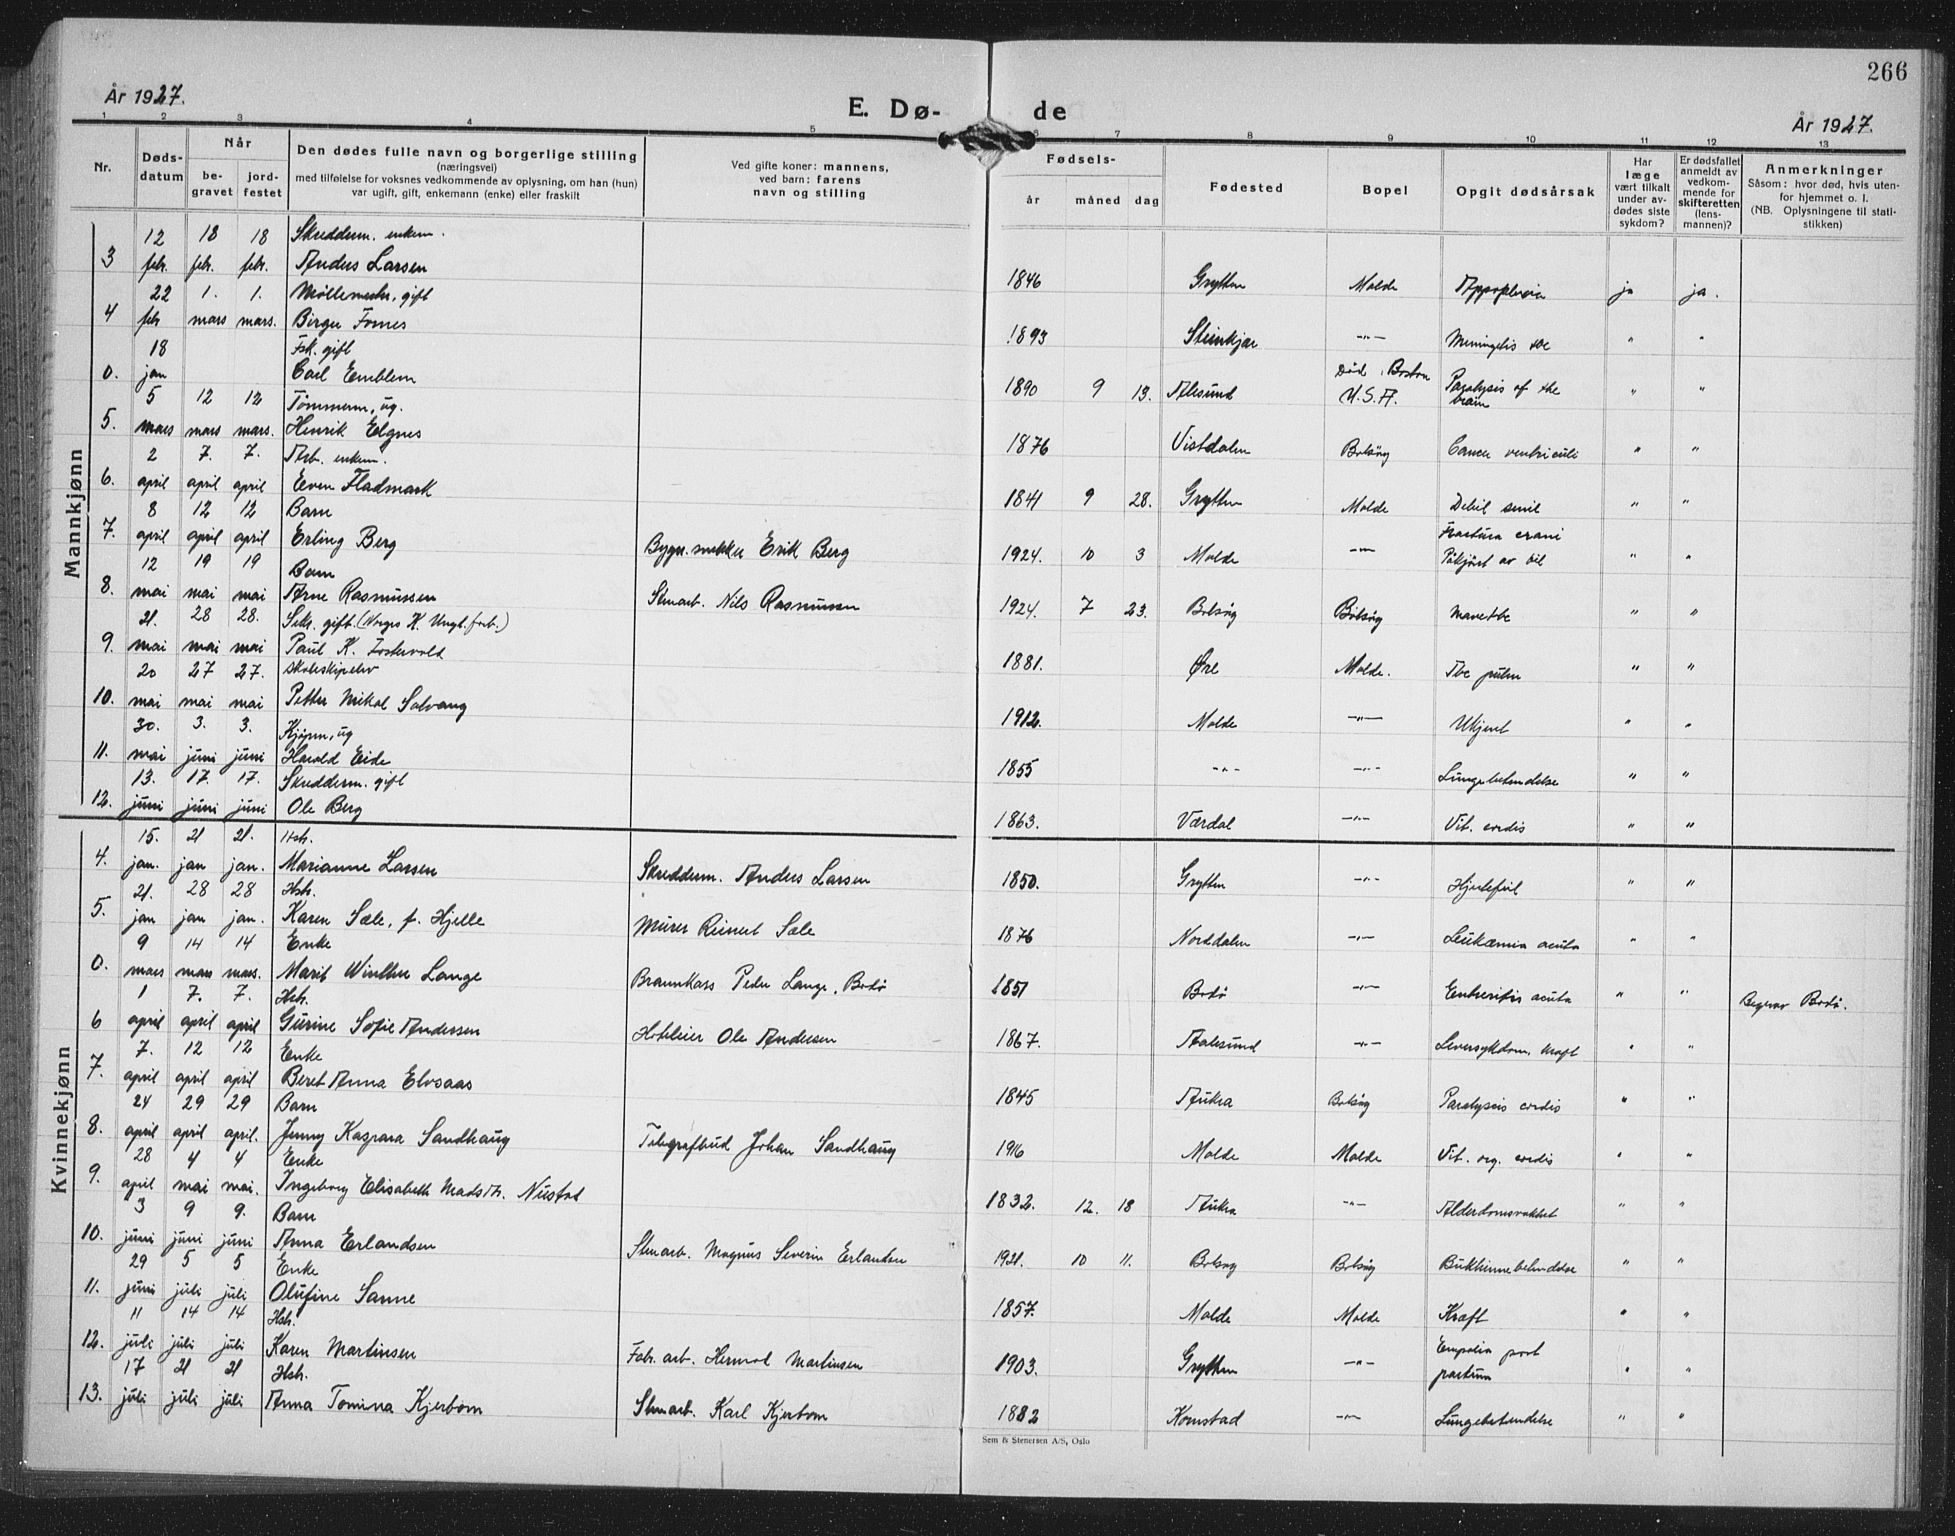 266
År 1927.
E. Dø-
de
År 1927.
1 2 3 4 5 6 7 8 9 10 11 12 13
Nr.
Døds-
datum
Når
be-
gravet
jord-
festet
Den dødes fulle navn og borgerlige stilling
(næringsvei)
med tilføielse for voksnes vedkommende av oplysning, om han (hun)
var ugift, gift, enkemann (enke) eller fraskilt
Ved gifte koner: mannens,
ved barn: farens
navn og stilling
Fødsels-
år måned dag
Fødested
Bopel
Opgit dødsårsak
Har
læge
vært tilkalt
under av-
dødes siste
sykdom?
Er dødsfallet
anmeldt av
vedkom-
mende for
skifteretten
(lens-
mannen)?
Anmerkninger
Såsom: hvor død, hvis uten-
for hjemmet o. l.
(NB. Oplysningene til stati-
stikken)
Mannkjønn
12 18 18 Skredderm. enkem.
3 febr. febr. febr. Anders Larsen 1846 Grytten Molde Apoplexia ja ja.
22 1. 1. Møllemestr, gift
4 febr mars mars. Birger Fornes 1893 Steinkjær -"- Meningitis tbc " "
18 Fsk. gift
0. jan Carl Emblem 1890 9 13. Ålesund Død i Boston U.S.A. Paralysis of the brain " "
5 12 12 Tømmerm, ug.
5. mars mars mars. Henrik Elgnes 1876 Vistdalen Bolsøy Cancer ventriculi " "
2 7. 7. Arb. enkem.
6. april april april Even Fladmark 1841 9 28. Grytten Molde Debil senil " "
8 12 12 Barn
7. april april april Erling Berg Bygn.snekker Erik Berg 1924. 10 3 Molde -"- Fractura crani Påkjørt av bil " "
12 19 19 Barn
8. mai mai mai Arne Rasmussen Stenarb. Nils Rasmussen 1924. 7 23. Bolsøy Bolsøy mavetbc " "
21. 28 28. Sekr. gift. (Norges K. Ungl.forb.)
9. mai mai mai Paul K. Fostervold 1881. Øre Molde. Tbc pulm " "
20 27 27. skoleskipelev
10. mai mai mai Petter Mikal Solvang 1912. Molde -"- Ukjent " "
30. 3. 3. Kjøpm, ug
11. mai juni juni Harald Eide 1855 -"- -"- Lungebetendelse " "
13. 17. 17. Skredderm. gift
12. juni juni juni Ole Berg 1863. Værdal -"- Vit. cordis " "
Kvinnekjønn
15. 21 21. Hstr.
4. jan. jan jan. Marianne Larsen Skredderm. Anders Larsen 1850. Grytten -"- Hjertefeil " "
21. 28 28 Hstr.
5. jan jan jan. Karen Sæle, f. Hjelle Murer Reinert Sæle 1876 Norddalen -"- Leukæmia acuta " "
9 14 14 Enke
0. mars mars mars. Marit Winther Lange Brannkass Peder Lange, Bodø 1851 Bodø -"- Enteritis acuta " " Begrav Bodø.
1 7. 7. Hstr.
6 april april april Gurine Sofie Andersen Hoteleier Ole Andersen 1867. Aalesund -"- Leversykdom, kraft " "
7. 12 12 Enke
7. april april april Beret Anna Elvsaas 1845 Aukra Bolsøy Paralysis cordis " "
24 29 29 Barn
8. april april april. Jenny Kaspara Sandhaug Telegrafbud Johan Sandhaug 1916 Molde Molde Vit. org. cordis " "
28 4 4 Enke
9. april mai mai. Ingeborg Elisabeth Madsdtr. Nustad 1832. 12. 18 Aukra -"- Alderdomsvakhet " "
3 9 9. Barn
10. juni juni juni Anna Erlandsen Stenarb. Magnus Severin Erlandsen 1921. 10 11. Bolsøy Bolsøy Bukhinnebetendelse " "
29 5 5 Enke
11. juni juli juli Olufine Sanne 1857. Molde Molde Kræft " "
11 14 14 Hstr.
12. juli juli juli Karen Martinsen Fabr. arb. Hermod Martinsen 1903. Grytten -"- post partum " "
17 21 21 Hstr.
13. juli juli juli Anna Tomina Kjerbom Stenarb. Karl Kjerbom 1882 Kornstad -"- Lungebetendelse " "
Sem & Stenersen A/S, Oslo